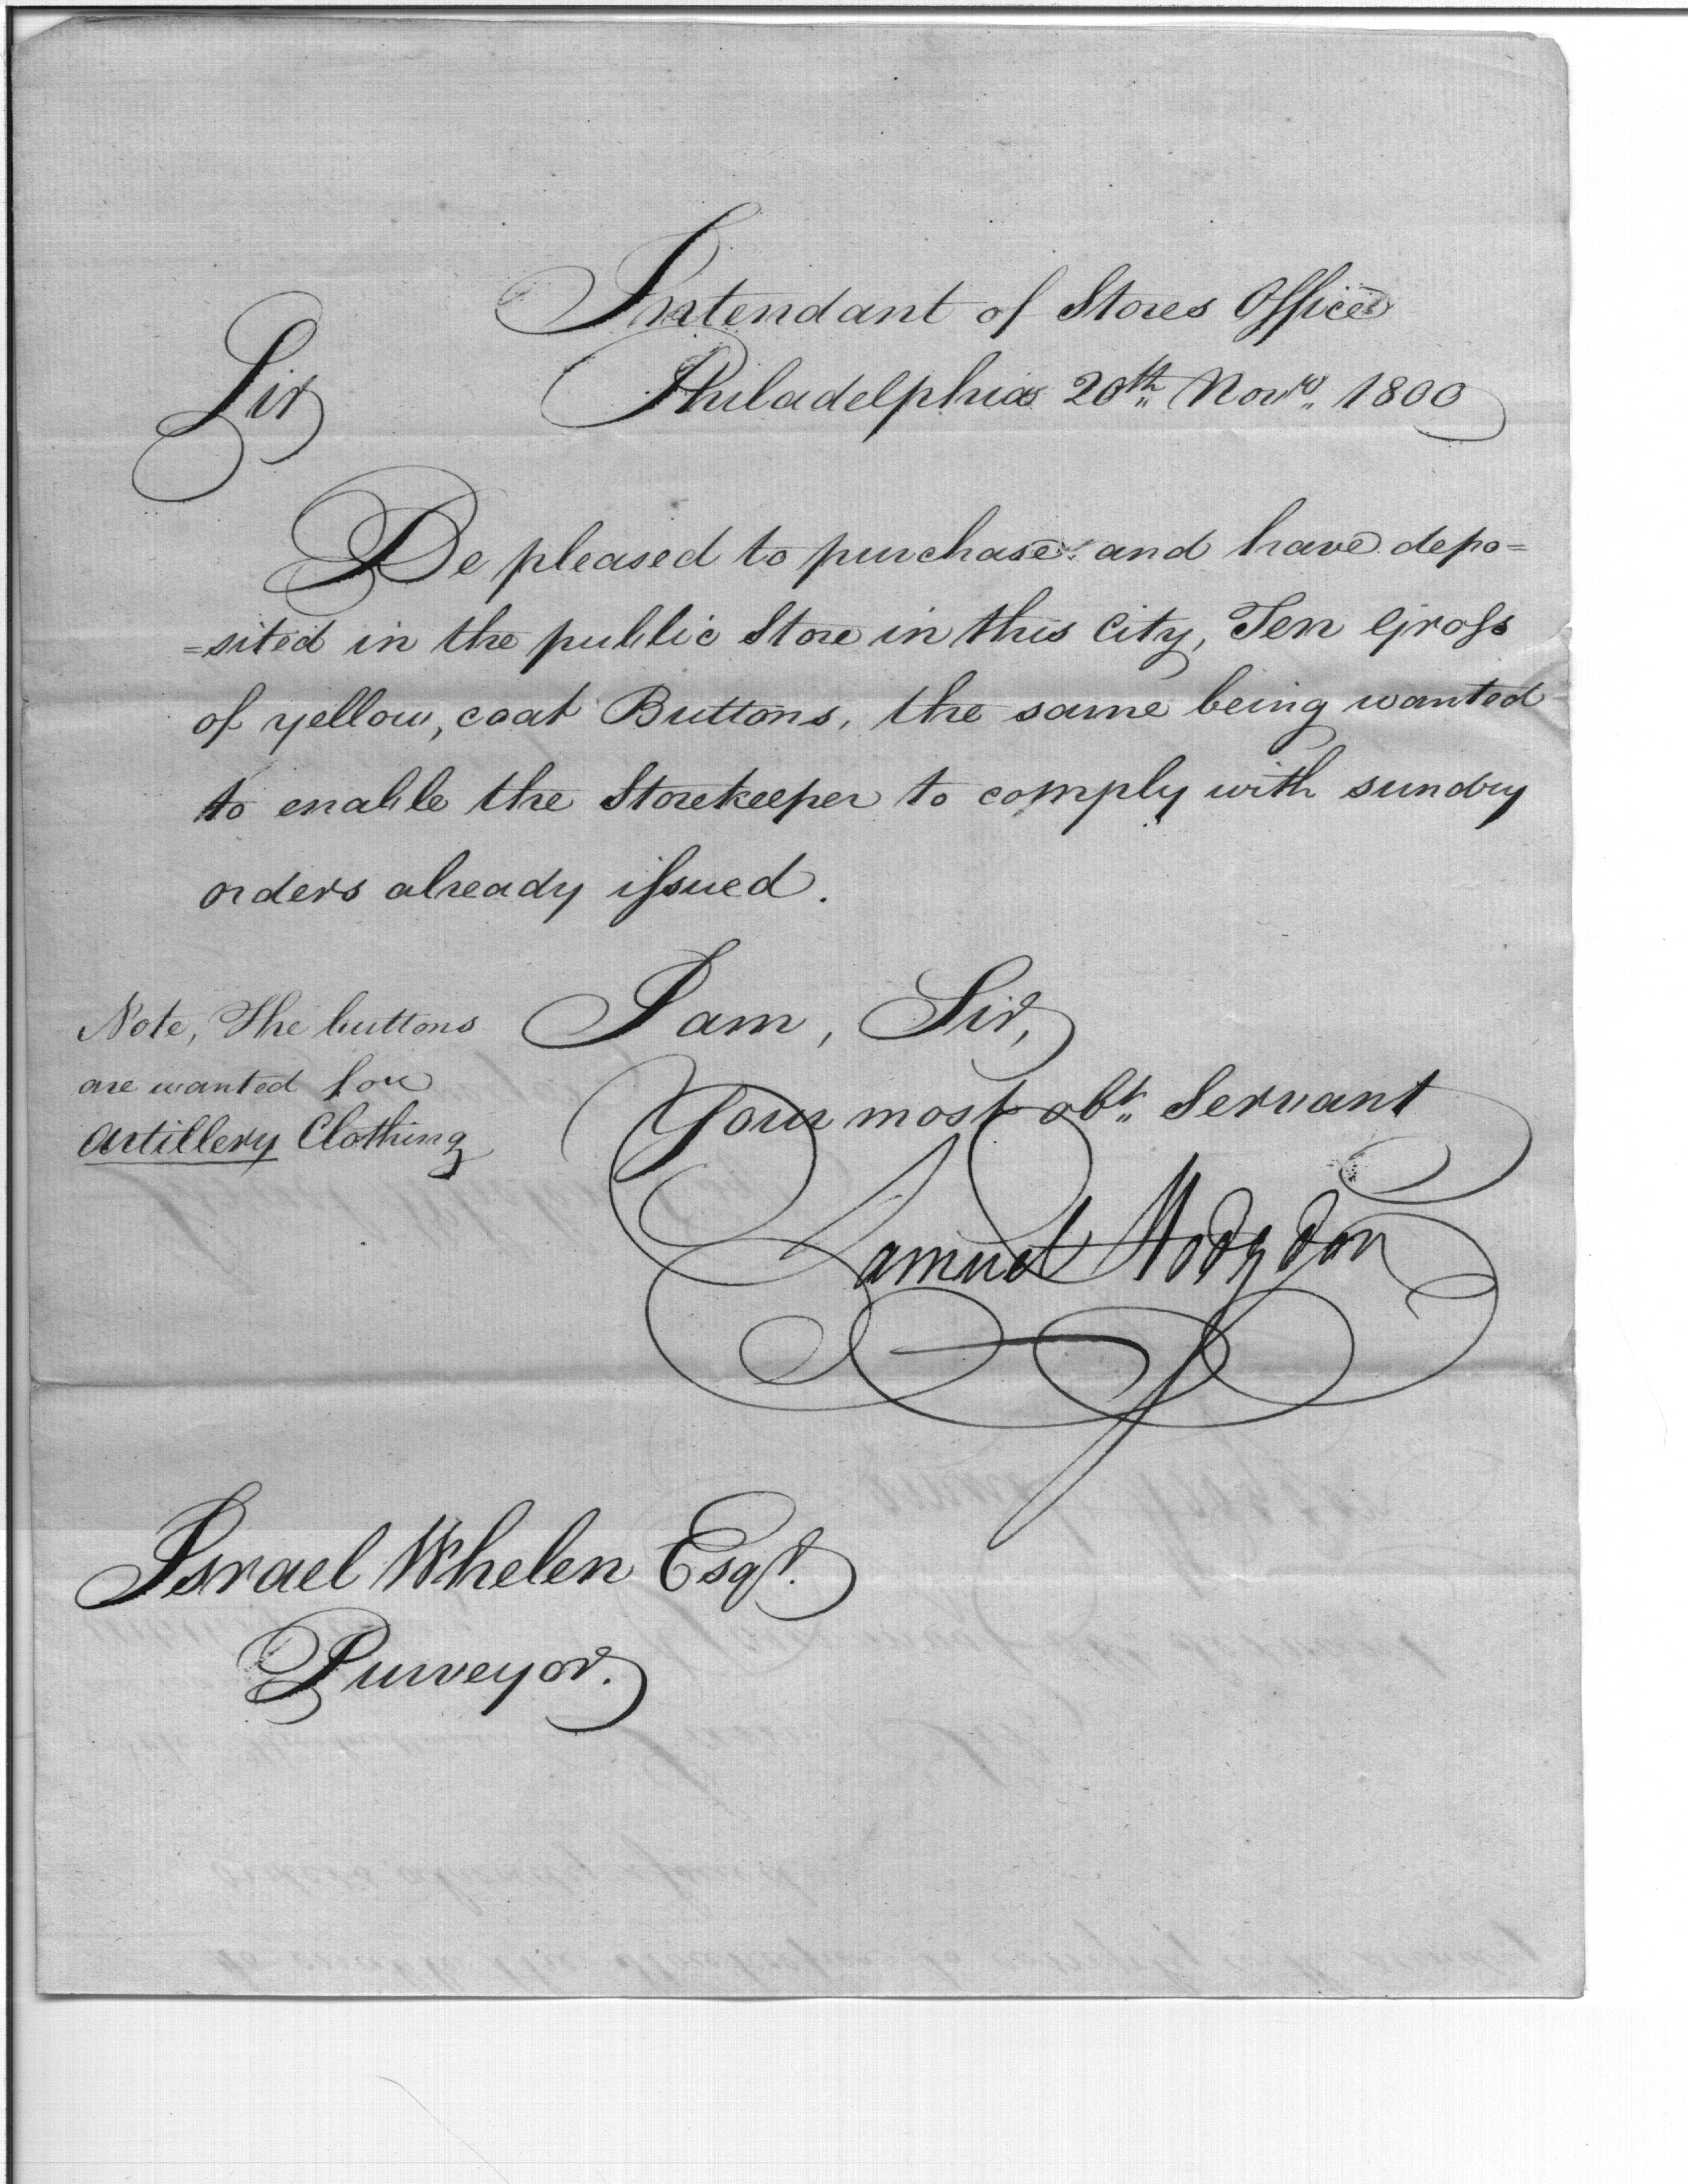 Intendant of Stores Office
Philadelphia 20th Novr. 1800
Sir
Be pleased to purchase and have depo=
=sited in the public Store in this City, Ten Groſs
of yellow, coat Buttons, the same being wanted
to enable the Storekeeper to comply with sundry
orders already iſsued.
I am, Sir,
Your most obt. Servant
Samuel Hodgdon
Note, The buttons
are wanted for
Artillery Clothing
Israel Whelen Esqr.
Purveyor.